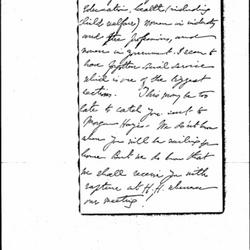 Education, health (including
child welfare) women in industry
and the professions, and
women in government. I seem to
have gotten social service
which is one of the biggest
sections. This may be too
late to catch you sent to
Morgan Harjes. We do not know
when you will be sailing for
home. But we do know that
we shall receive you with
rapture at H.H. whenever
our meeting.